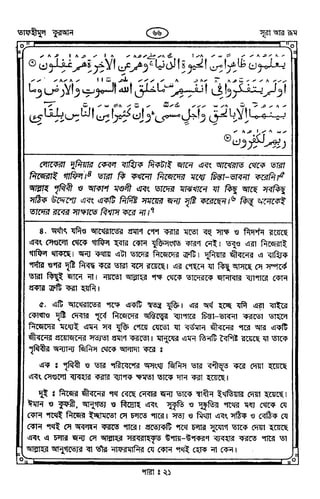 তাফহীমুল কুরআন
৬৬
সূরা আর রূম
يَعْلَمُونَ ظَاهِرًا مِّنَ الْحَيٰوةِ الدُّنْيَا ۚ وَهُمْ عَنِ الْاٰخِرَةِ هُمْ غٰفِلُوْنَ ۝
اَوَلَمْ يَتَفَكَّرُوْا فِىْۤ اَنْفُسِهِمْ مَا خَلَقَ اللّٰهُ السَّمٰوٰتِ وَالْاَرْضَ وَمَا
بَيْنَهُمَاۤ اِلَّا بِالْحَقِّ وَاَجَلٍ مُّسَمًّى ؕ وَاِنَّ كَثِيْرًا مِّنَ النَّاسِ بِلِقَآئِ
رَبِّهِمْ لَكٰفِرُوْنَ ۝
লোকেরা দুনিয়ার কেবল বাহ্যিক দিকটাই জানে এবং আখেরাত থেকে তারা
নিজেরাই গাফিল।৪ তারা কি কখনো নিজেদের মধ্যে চিন্তা-ভাবনা করেনি?৫
আল্লাহ পৃথিবী ও আকাশ মণ্ডলী এবং তাদের মাঝখানে যা কিছু আছে সবকিছু
সঠিক উদ্দেশ্যে এবং একটি নির্দিষ্ট সময়ের জন্য সৃষ্টি করেছেন।৬ কিন্তু অনেকেই
তাদের রবের সাক্ষাতে বিশ্বাস করে না।৭
৪. অর্থাৎ যদিও আখেরাতের প্রমাণ পেশ করার মতো বহু সাক্ষ ও নিদর্শন রয়েছে
এবং সেগুলো থেকে গাফিল হবার কোন যুক্তিসংগত কারণ নেই। তবুও এরা নিজেরাই
গাফিল থাকছে। অন্য কথায় এটা তাদের নিজেদের ত্রুটি। দুনিয়ার জীবনের এ বাহ্যিক
পর্দার ওপর দৃষ্টি নিবদ্ধ করে তারা বসে রয়েছে। এর পেছনে যা কিছু আসছে সে সম্পর্কে
তারা কিছুই জানে না। নয়তো আল্লাহর পক্ষ থেকে তাদেরকে জানাবার ব্যাপারে কোন
প্রকার ত্রুটি করা হয়নি।
৫. এটি আখেরাতের পক্ষে একটি স্বতন্ত্র যুক্তি। এর অর্থ হচ্ছে যদি এরা বাইরে
কোথাও দৃষ্টি দেবার পূর্বে নিজেদের অস্তিত্বের ব্যাপারে চিন্তা-ভাবনা করতো তাহলে
নিজেদের মধ্যেই এমন সব যুক্তি পেয়ে যেতো যা বর্তমান জীবনের পরে আর একটি
জীবনের প্রয়োজনের সত্যতা প্রমাণ করতো। মানুষের এমন তিনটি বৈশিষ্ট রয়েছে যা তাকে
পৃথিবীর অন্যান্য জিনিস থেকে আলাদা করে :
এক : পৃথিবী ও তার পরিবেশের অসংখ্য জিনিস তার বশীভূত করে দেয়া হয়েছে
এবং সেগুলো ব্যবহার করার ব্যাপক ক্ষমতা তাকে দান করা হয়েছে।
দুই : নিজের জীবনের পথ বেছে নেবার জন্য তাকে স্বাধীন ইখতিয়ার দেয়া হয়েছে।
ঈমান ও কুফরী, আনুগত্য ও বিদ্রোহ এবং সুকৃতি ও দুষ্কৃতির পথের মধ্য থেকে যে
কোন পথেই নিজের ইচ্ছামতো সে চলতে পারে। সত্য ও মিথ্যা এবং সঠিক ও বেঠিক যে
কোন পথই সে অবলম্বন করতে পারে। প্রত্যেকটি পথে চলার সুযোগ তাকে দেয়া হয়েছে
এবং এ চলার জন্য সে আল্লাহর সরবরাহকৃত উপায়-উপকরণ ব্যবহার করতে পারে তা
আল্লাহর আনুগত্যের বা তাঁর নাফরমানির যে কোন পথই হোক না কেন।
পারা : ২১